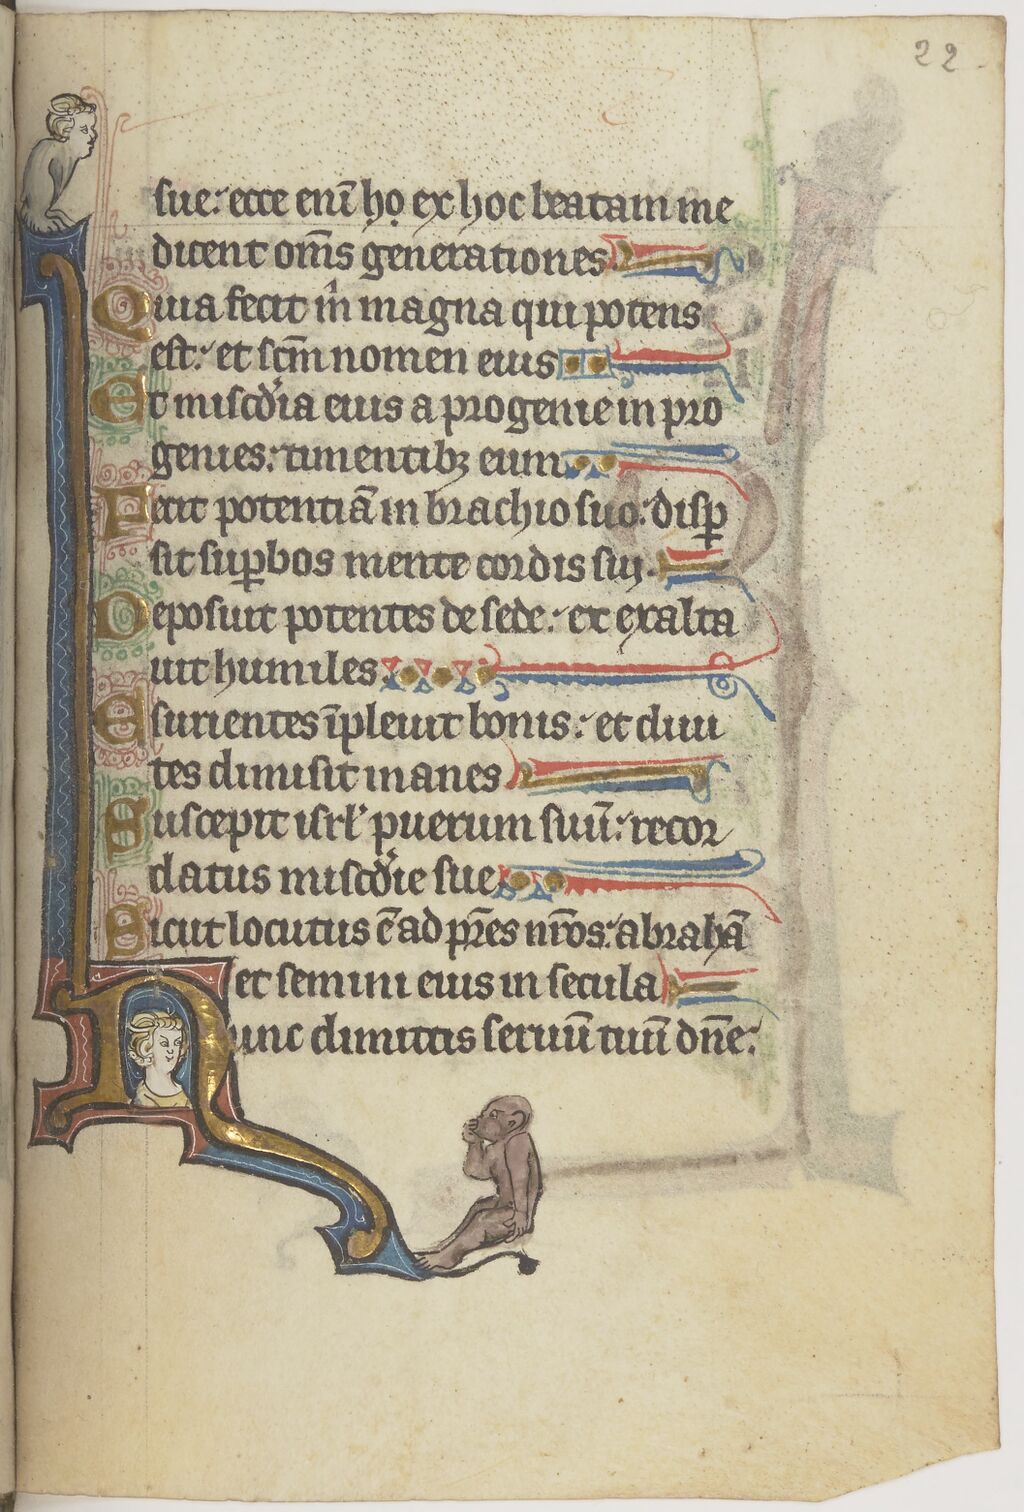 22
sue: ecce eni̅ ho̩ ex hoc beatam me
dicent om̅s generationes
Quia fecit m̍ magna qui potens
est: et sc̅m nomen eius
Et misc̅dia eius a progenie in pro
genies: timentibꝫ eum
Fecit potentia̅ in brachio suo: disꝑ
sit suꝑbos mente cordis sui.
Deposuit potentes de sede: et exalta
uit humiles
Esurientes i̅pleuit bonis: et diui
tes dimisit inanes
Suscepit isrl̍ puerum suu̅: recor
datus misc̅die sue
Sicut locutus e̅ ad pr̅es nr̅os: abraha̅
et semini eius in secula
Nunc dimittis seruu̅ tuu̅ dn̅e: